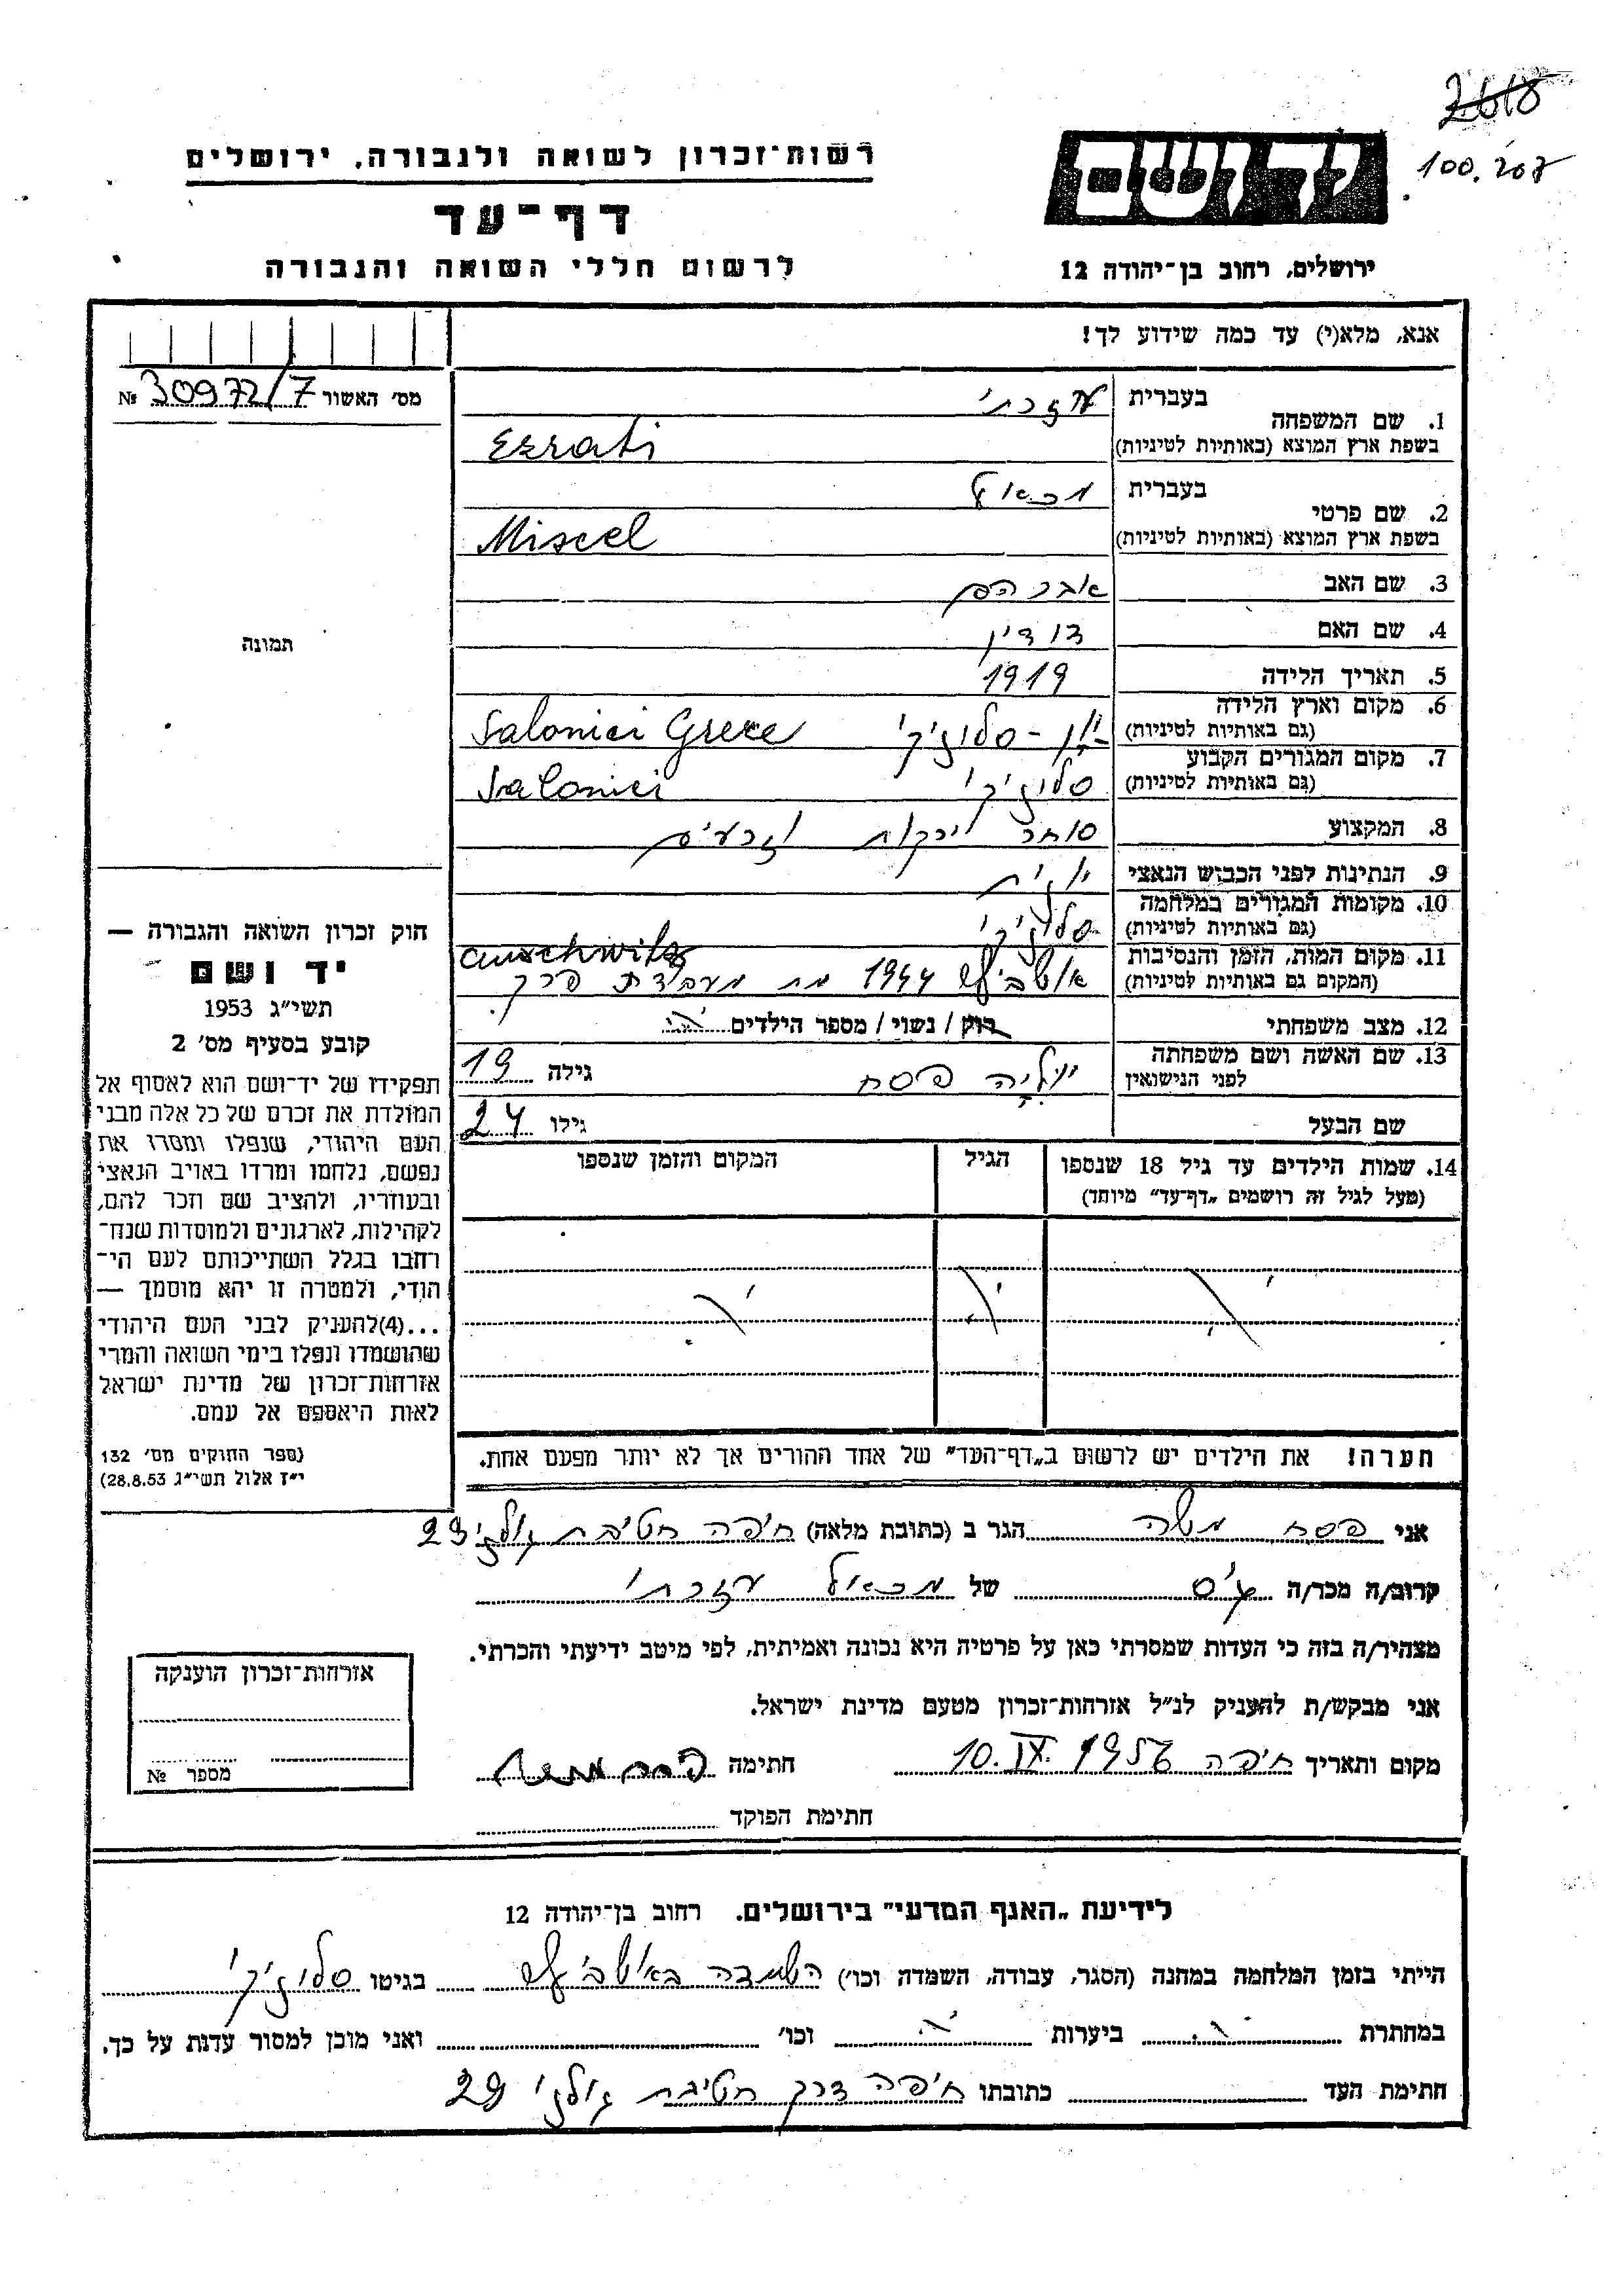 2618
100.207
יד ושם
רשות־זכרון לשואה ולגבורה, ירושלים
דף־עד
ירושלים, רחוב בן־יהודה 12
לרשום חללי השואה והגבורה
אנא, מלא(י) עד כמה שידוע לך!
מס׳ האשור 30972/7 №
תמונה
1. שם המשפחה
בעברית עזרתי
בשפת ארץ המוצא (באותיות לטיניות) Ezrati
2. שם פרטי
בעברית מכאל
בשפת ארץ המוצא (באותיות לטיניות) Miscel
3. שם האב אברהם
4. שם האם דודין
5. תאריך הלידה 1919
6. מקום וארץ הלידה
(גם באותיות לטיניות) יון - סלוניקי Salonici Grece
7. מקום המגורים הקבוע
(גם באותיות לטיניות) סלוניקי Salonici
8. המקצוע סוחר ירקות וזרעים
9. הנתינות לפני הכבוש הנאצי יונית
10. מקומות המגורים במלחמה
(גם באותיות לטיניות) סלוניקי
11. מקום המות, הזמן והנסיבות
(המקום גם באותיות לטיניות) auschwitz
אושביץ 1944 מת מעבודת פרך
12. מצב משפחתי רוק / נשוי / מספר הילדים
13. שם האשה ושם משפחתה
לפני הנישואין יוליה פסח גילה 19
שם הבעל גילו 24
14. שמות הילדים עד גיל 18 שנספו הגיל המקום והזמן שנספו
(מעל לגיל זה רושמים „דף־עד״ מיוחד)
הערה! את הילדים יש לרשום ב„דף־העד״ של אחד ההורים אך לא יותר מפעם אחת.
חוק זכרון השואה והגבורה —
יד ושם
תשי״ג 1953
קובע בסעיף מס׳ 2
תפקידו של יד־ושם הוא לאסוף אל
המולדת את זכרם של כל אלה מבני
העם היהודי, שנפלו ומסרו את
נפשם, נלחמו ומרדו באויב הנאצי
ובעוזריו, ולהציב שם וזכר להם,
לקהילות, לארגונים ולמוסדות שנח־
רחבו בגלל השתייכותם לעם הי־
הודי, ולמטרה זו יהא מוסמך —
...(4)להעניק לבני העם היהודי
שהושמדו ונפלו בימי השואה והמרי
אזרחות־זכרון של מדינת ישראל
לאות היאספם אל עמם.
(ספר החוקים מס׳ 132
י״ז אלול תשי״ג 28.8.53)
אני פסח משה הגר ב (כתובת מלאה) חיפה חטיבת גולני 29
קרוב/ה מכר/ה גיס של מכאל עזרתי
מצהיר/ה בזה כי העדות שמסרתי כאן על פרטיה היא נכונה ואמיתית, לפי מיטב ידיעתי והכרתי.
אני מבקש/ת להעניק לנ״ל אזרחות־זכרון מטעם מדינת ישראל.
מקום ותאריך חיפה 10.IX.1956 חתימה פסח משה
חתימת הפוקד
אזרחות־זכרון הוענקה
מספר №
לידיעת „האנף המדעי״ בירושלים. רחוב בן־יהודה 12
הייתי בזמן המלחמה במחנה (הסגר, עבודה, השמדה וכו׳) השמדה באושביץ בגיטו סלוניקי
במחתרת ביערות וכו׳ ואני מוכן למסור עדות על כך.
חתימת העד כתובתו חיפה דרך חטיבת גולני 29